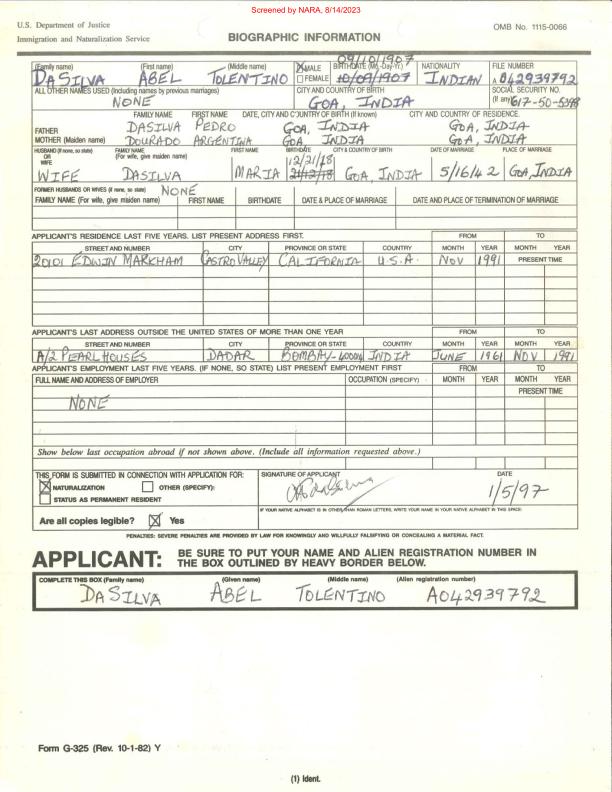 Screened by NARA, 8/14/2023
U.S. Department of Justice
Immigration and Naturalization Service
OMB No. 1115-0066
BIOGRAPHIC INFORMATION
(Family name) (First name) (Middle name) MALE FEMALE BIRTHDATE (Mo.-Day-Yr.) NATIONALITY FILE NUMBER
DASILVA ABEL TOLENTINO 09/10/1907 10/09/1907 INDIAN A 042939792
ALL OTHER NAMES USED (Including names by previous marriages) CITY AND COUNTRY OF BIRTH SOCIAL SECURITY NO. (If any)
NONE GOA, INDIA 617-50-5398
FAMILY NAME FIRST NAME DATE, CITY AND COUNTRY OF BIRTH (If known) CITY AND COUNTRY OF RESIDENCE.
FATHER DASILVA PEDRO GOA, INDIA GOA, INDIA
MOTHER (Maiden name) DOURADO ARGENTINA GOA, INDIA GOA, INDIA
HUSBAND (If none, so state) OR WIFE FAMILY NAME (For wife, give maiden name) FIRST NAME BIRTHDATE CITY & COUNTRY OF BIRTH DATE OF MARRIAGE PLACE OF MARRIAGE
WIFE DASILVA MARIA 12/21/18 21/12/18 GOA, INDIA 5/16/42 GOA, INDIA
FORMER HUSBANDS OR WIVES (if none, so state) NONE
FAMILY NAME (For wife, give maiden name) FIRST NAME BIRTHDATE DATE & PLACE OF MARRIAGE DATE AND PLACE OF TERMINATION OF MARRIAGE
APPLICANT'S RESIDENCE LAST FIVE YEARS. LIST PRESENT ADDRESS FIRST. FROM TO
STREET AND NUMBER CITY PROVINCE OR STATE COUNTRY MONTH YEAR MONTH YEAR
20101 EDWIN MARKHAM CASTRO VALLEY CALIFORNIA U.S.A. NOV 1991 PRESENT TIME
APPLICANT'S LAST ADDRESS OUTSIDE THE UNITED STATES OF MORE THAN ONE YEAR FROM TO
STREET AND NUMBER CITY PROVINCE OR STATE COUNTRY MONTH YEAR MONTH YEAR
A/2 PEARL HOUSES DADAR BOMBAY-400014 INDIA JUNE 1961 NOV 1991
APPLICANT'S EMPLOYMENT LAST FIVE YEARS. (IF NONE, SO STATE) LIST PRESENT EMPLOYMENT FIRST FROM TO
FULL NAME AND ADDRESS OF EMPLOYER OCCUPATION (SPECIFY) MONTH YEAR MONTH YEAR
PRESENT TIME
NONE
Show below last occupation abroad if not shown above. (Include all information requested above.)
THIS FORM IS SUBMITTED IN CONNECTION WITH APPLICATION FOR: SIGNATURE OF APPLICANT DATE
NATURALIZATION OTHER (SPECIFY):
STATUS AS PERMANENT RESIDENT 1/5/97
IF YOUR NATIVE ALPHABET IS IN OTHER THAN ROMAN LETTERS, WRITE YOUR NAME IN YOUR NATIVE ALPHABET IN THIS SPACE:
Are all copies legible? Yes
PENALTIES: SEVERE PENALTIES ARE PROVIDED BY LAW FOR KNOWINGLY AND WILLFULLY FALSIFYING OR CONCEALING A MATERIAL FACT.
APPLICANT: BE SURE TO PUT YOUR NAME AND ALIEN REGISTRATION NUMBER IN
THE BOX OUTLINED BY HEAVY BORDER BELOW.
COMPLETE THIS BOX (Family name) (Given name) (Middle name) (Alien registration number)
DASILVA ABEL TOLENTINO A042939792
Form G-325 (Rev. 10-1-82) Y
(1) Ident.